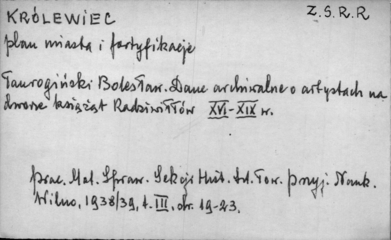 KRÓLEWIEC
Z.S.R.R
plan miasta i fortyfikacje
Taurogiński Bolesław. Dane archiwalne o artystach na
dworze książąt Radziwiłłów XVI-XIX w.
prac. Mat. Spraw. Sekcji Hist. Szt. Tow. przyj. Nauk.
Wilno, 1938/39, t. III, str. 19-23.